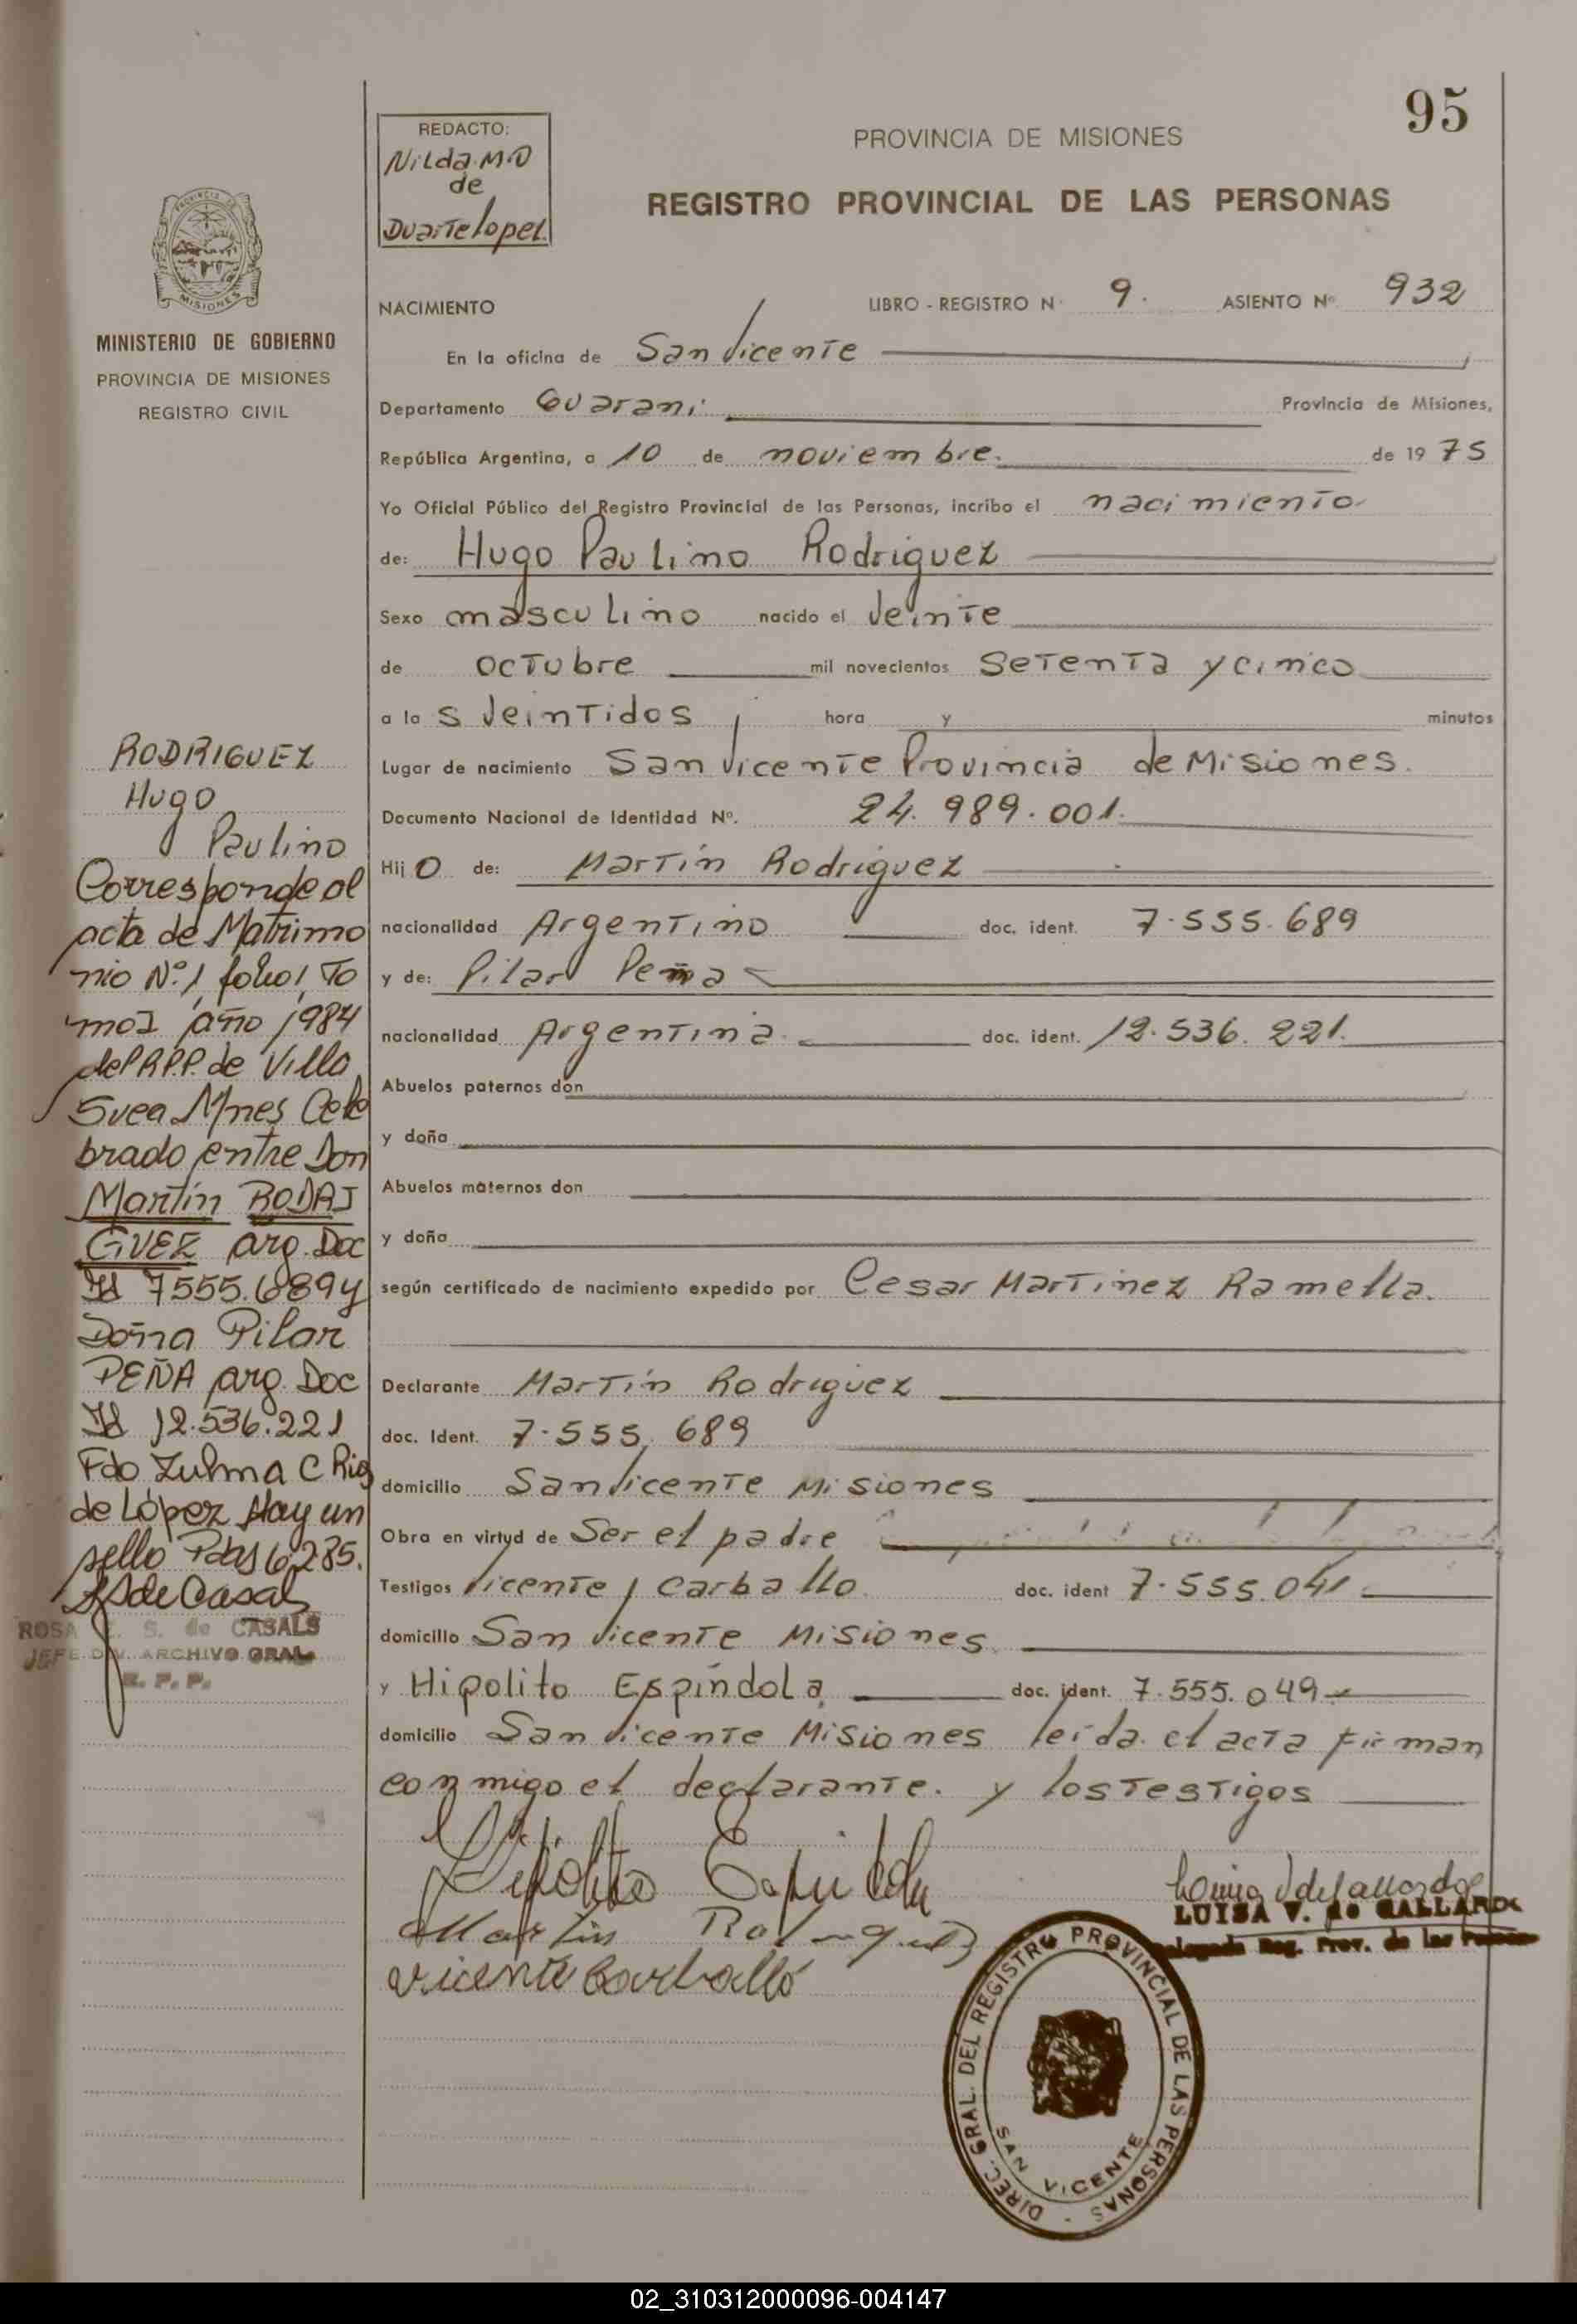 95
REDACTO:
Nilda M.D
de
Duarte lopez
PROVINCIA DE MISIONES
REGISTRO PROVINCIAL DE LAS PERSONAS
PROVINCIA DE
MISIONES
MINISTERIO DE GOBIERNO
PROVINCIA DE MISIONES
REGISTRO CIVIL
NACIMIENTO LIBRO - REGISTRO N 9. ASIENTO Nº 932
En la oficina de San Vicente
Departamento Guarani Provincia de Misiones,
República Argentina, a 10 de noviembre. de 19 75
Yo Oficial Público del Registro Provincial de las Personas, incribo el nacimiento
de: Hugo Paulino Rodriguez
Sexo masculino nacido el Veinte
de octubre mil novecientos Setenta y cinco
a la s Veintidos hora y minutos
Lugar de nacimiento San Vicente Provincia de Misiones.
Documento Nacional de Identidad Nº. 24.989.001.
Hij o de: Martín Rodriguez
nacionalidad Argentino doc. ident. 7.555.689
y de: Pilar Peña
nacionalidad Argentina. doc. ident. 12.536.221.
Abuelos paternos don
y doña
Abuelos maternos don
y doña
según certificado de nacimiento expedido por Cesar Martinez Ramella.
Declarante Martín Rodriguez
doc. Ident. 7.555,689
domicilio San Vicente Misiones
Obra en virtud de Ser el padre
Testigos Vicente Carballo. doc. ident 7.555.041
domicilio San Vicente Misiones.
y Hipolito Espíndola doc. ident. 7.555.049
domicilio San Vicente Misiones leída el acta firman
conmigo el declarante. y los testigos
Hipolito Espindola
Martin Rodriguez
Vicente Carballo
LUISA V. de GALLARDO
Delegada Reg. Prov. de las Personas
DIREC. GRAL. DEL REGISTRO PROVINCIAL DE LAS PERSONAS -
SAN VICENTE
RODRIGUEZ
Hugo
Paulino
Corresponde al
acta de Matrimo
nio Nº1, folio 1, To
mo I año 1984
del R.P.P. de Villa
Svea Mnes Cele
brado entre Don
Martín RODRI
GUEZ arg. Doc
Id 7555.689 y
Doña Pilar
PEÑA arg. Doc
Id 12.536.221
Fdo Zulma C Rios
de López Hay un
sello Pdas 6.2.85.
ROSA E. S. de CASALS
JEFE DIV. ARCHIVO GRAL.
R. P. P.
02_310312000096-004147